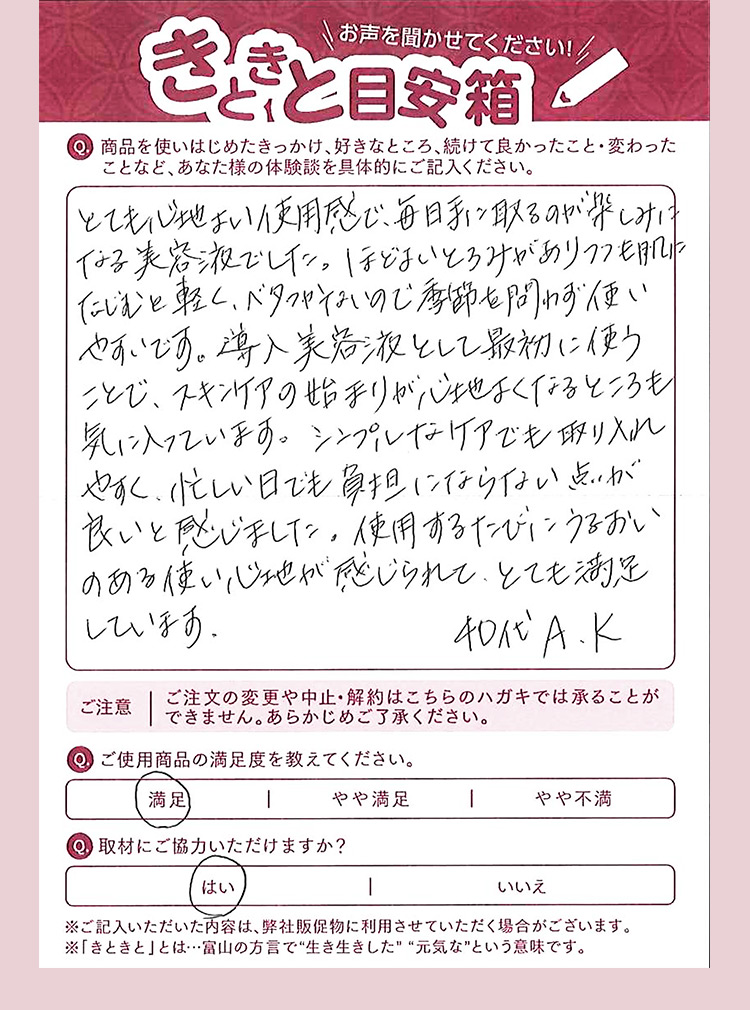 お声を聞かせてください!
きときと目安箱
Q. 商品を使いはじめたきっかけ、好きなところ、続けて良かったこと・変わった
ことなど、あなた様の体験談を具体的にご記入ください。
とても心地よい使用感で、毎日手に取るのが楽しみに
なる美容液でした。ほどよいとろみがありつつも肌に
なじむと軽く、ベタつかないので季節を問わず使い
やすいです。導入美容液として最初に使う
ことで、スキンケアの始まりが心地よくなるところも
気に入っています。シンプルなケアでも取り入れ
やすく、忙しい日でも負担にならない点が
良いと感じました。使用するたびにうるおい
のある使い心地が感じられて、とても満足
しています。
40代 A.K
ご注意
ご注文の変更や中止・解約はこちらのハガキでは承ることが
できません。あらかじめご了承ください。
Q. ご使用商品の満足度を教えてください。
満足 | やや満足 | やや不満
Q. 取材にご協力いただけますか?
はい | いいえ
※ご記入いただいた内容は、弊社販促物に利用させていただく場合がございます。
※「きときと」とは…富山の方言で“生き生きした” “元気な”という意味です。